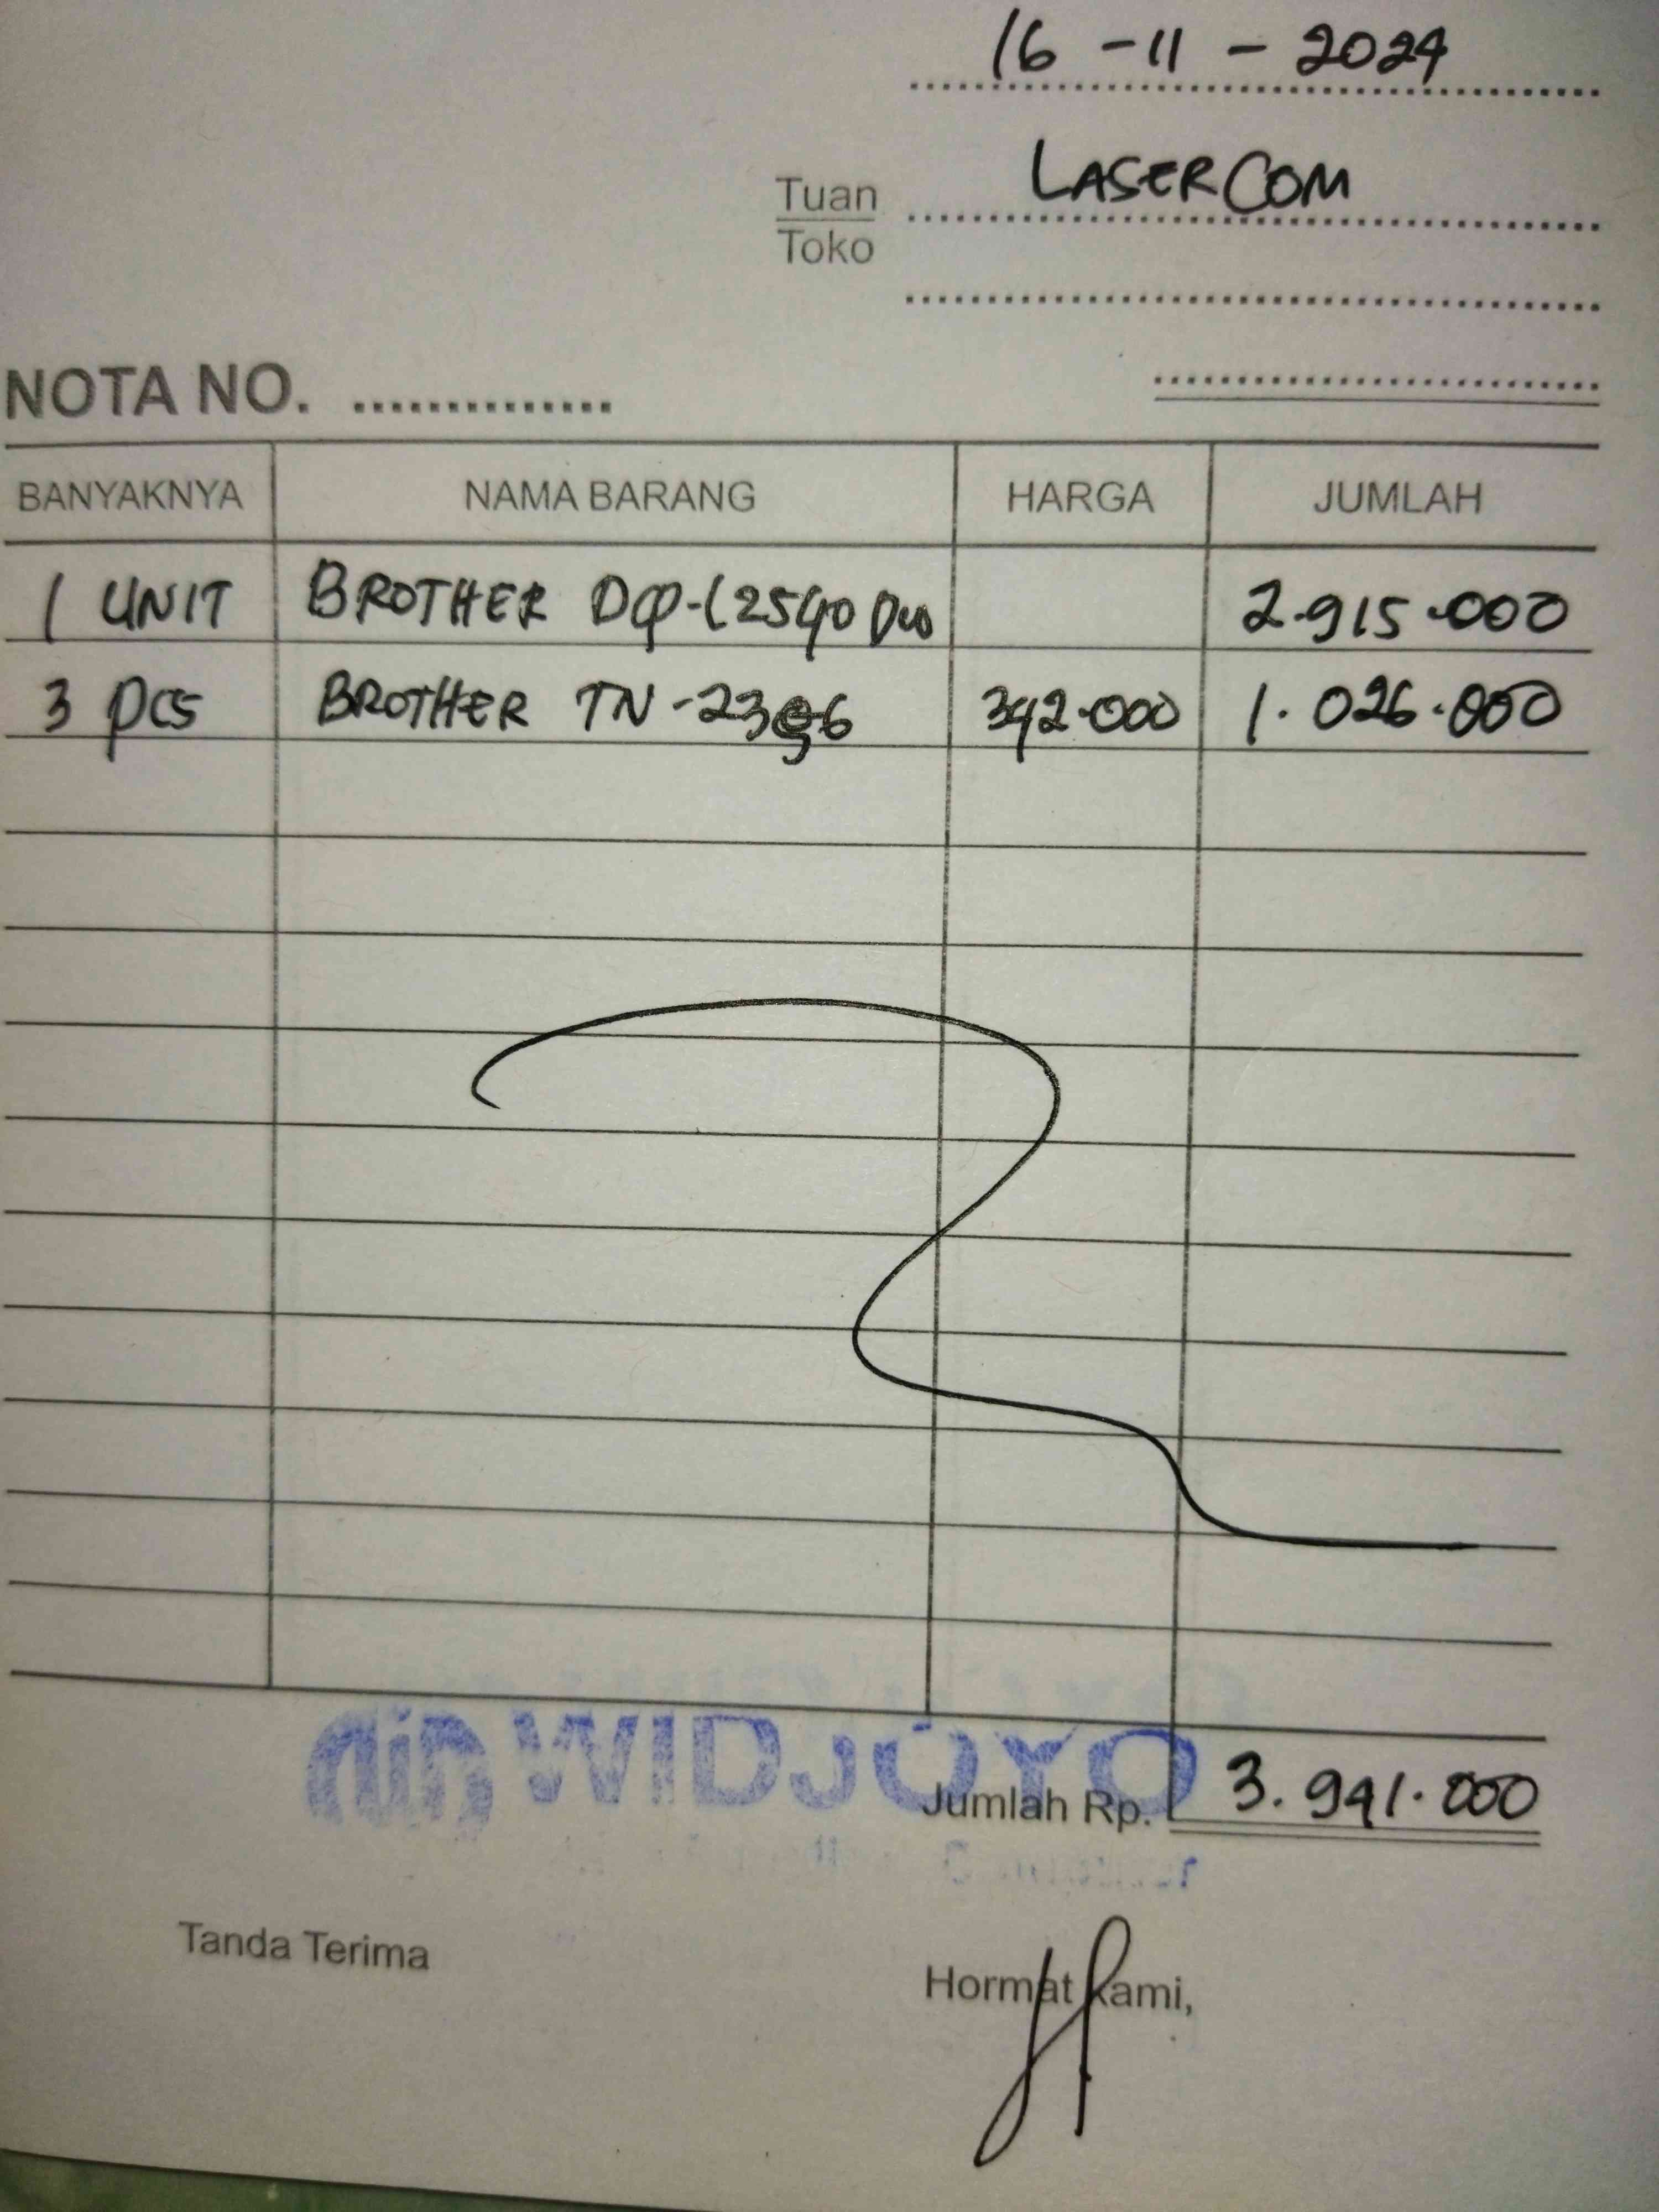 16 - 11 - 2024
Tuan LASERCOM
Toko
NOTA NO. ..............
BANYAKNYA NAMA BARANG HARGA JUMLAH
1 UNIT BROTHER DCP-L2540 DW 2.915.000
3 PCS BROTHER TN-2356 342.000 1.026.000
WIDJOYO
Jumlah Rp. 3.941.000
Tanda Terima
Hormat Kami,